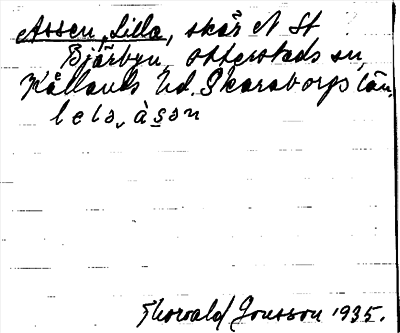 Assen, Lilla, skär N St.
Bjärbyn, Otterstads sn,
Kållands hd. Skaraborgs län.
leta, àsən
Thorwald Jonsson 1935.